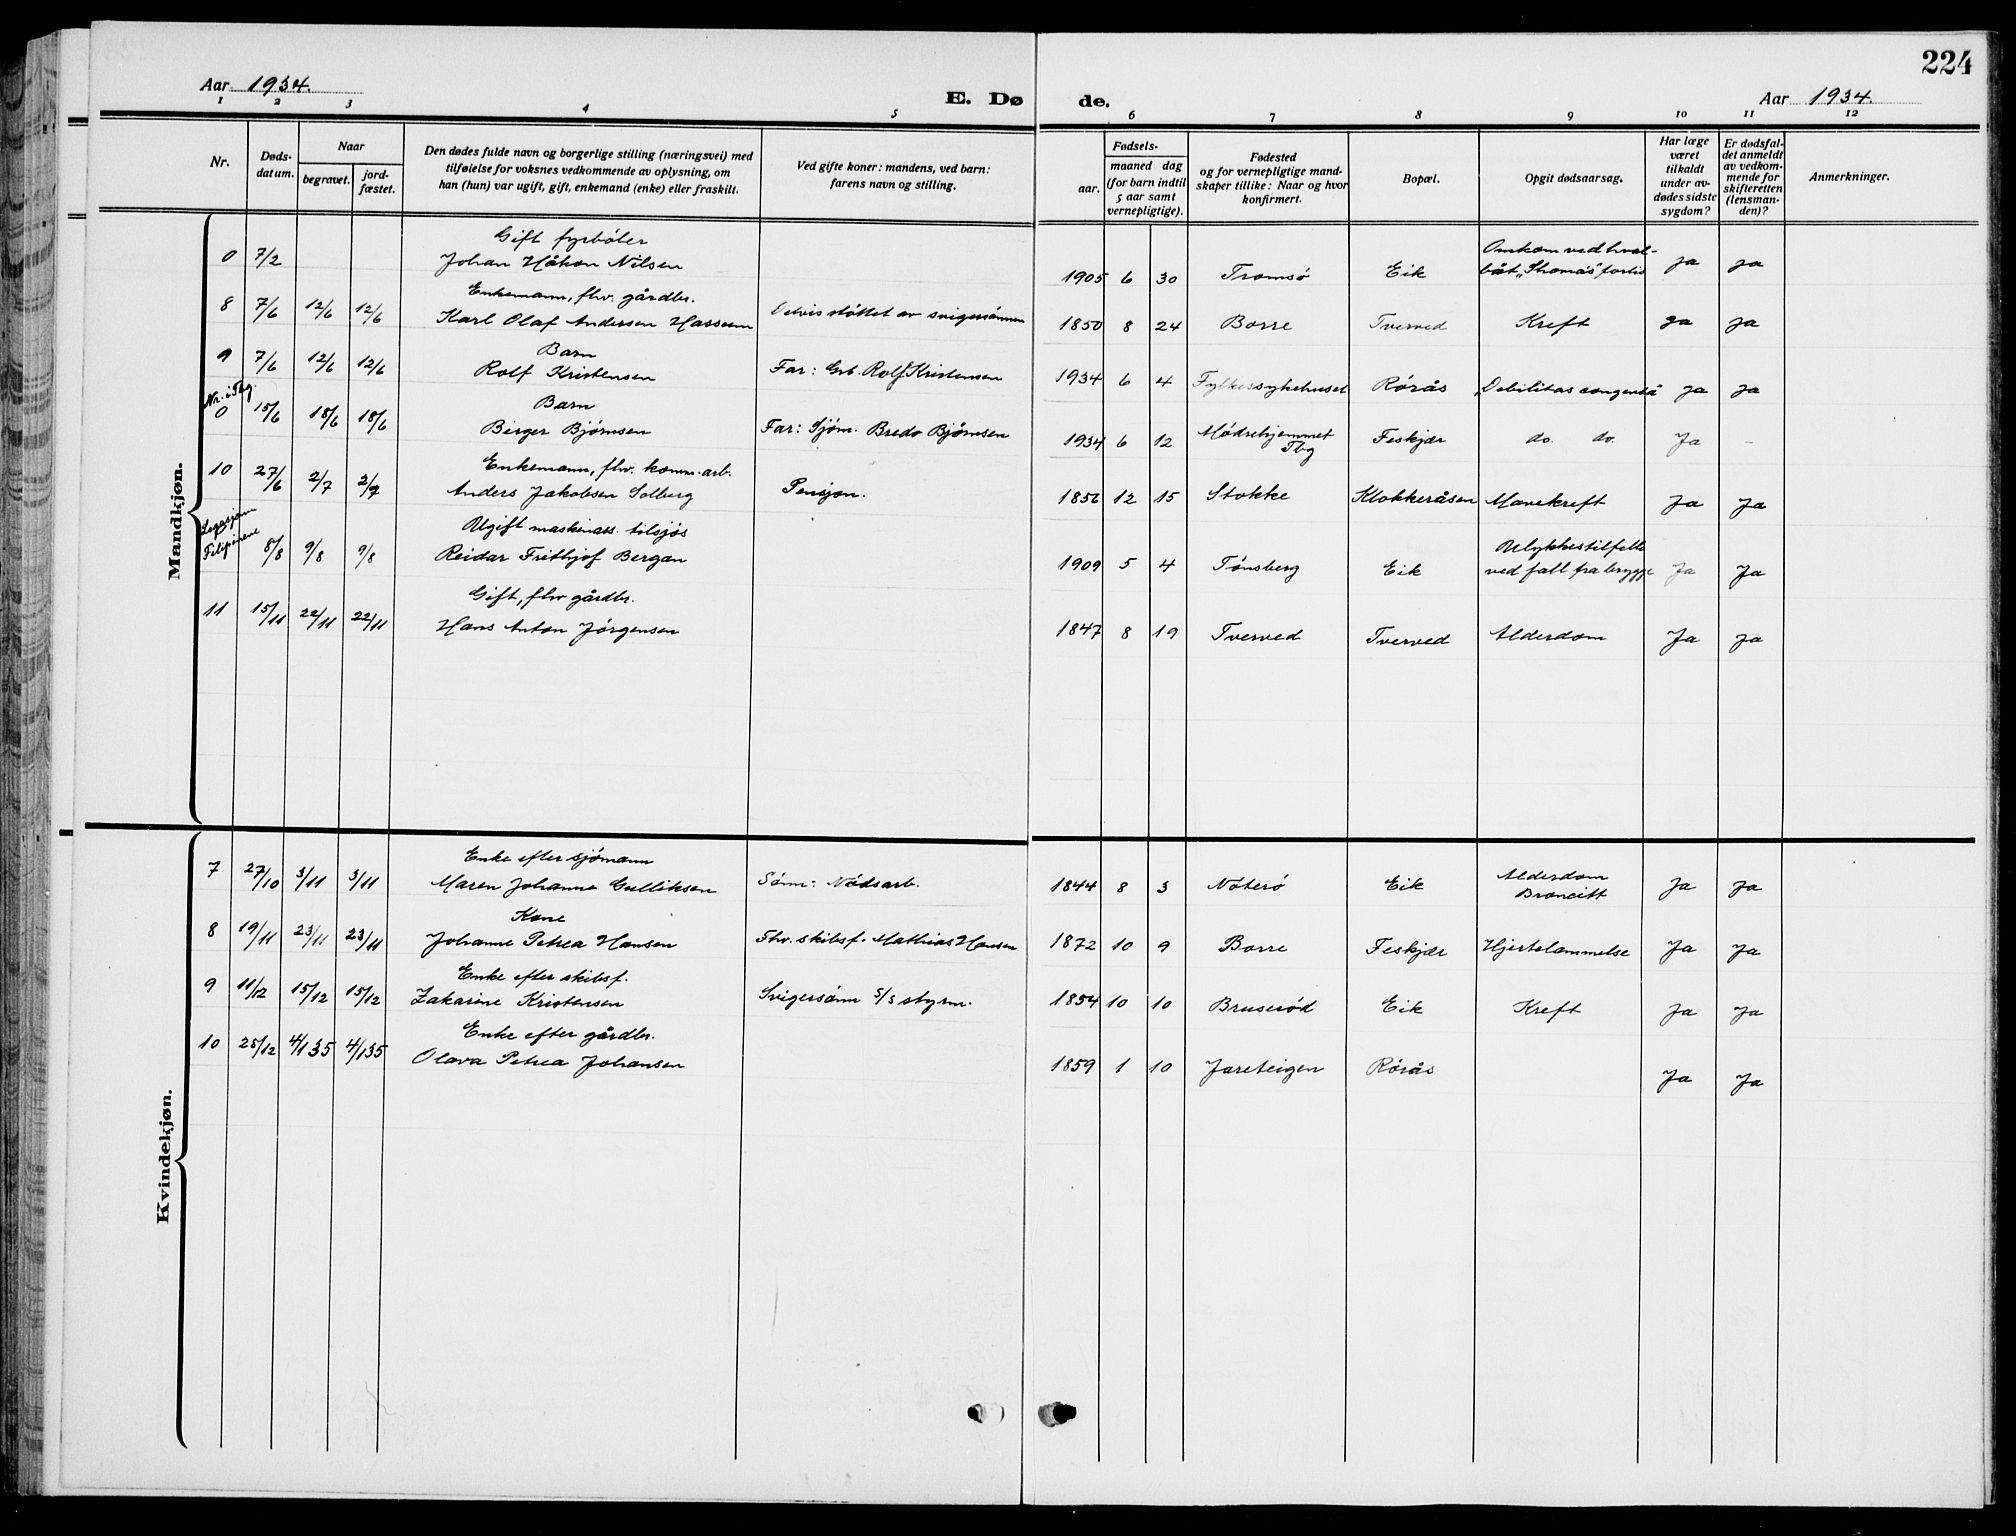 224
Aar 1934.
E. Dø
de.
Aar 1934.
1 2 3 4 5 6 7 8 9 10 11 12
Nr.
Døds-
datum.
Naar
begravet.
jord-
fæstet.
Den dødes fulde navn og borgerlige stilling (næringsvei) med
tilføielse for voksnes vedkommende av oplysning, om
han (hun) var ugift, gift, enkemand (enke) eller fraskilt.
Ved gifte koner: mandens, ved barn:
farens navn og stilling.
Fødsels-
aar.
maaned dag
(for barn indtil
5 aar samt
vernepligtige).
Fødested
og for vernepligtige mand-
skaper tillike: Naar og hvor
konfirmert.
Bopæl.
Opgit dødsaarsag.
Har læge
været
tilkaldt
under av-
dødes sidste
sygdom?
Er dødsfal-
det anmeldt
av vedkom-
mende for
skifteretten
(lensman-
den)?
Anmerkninger.
Mandkjøn.
Gift fyrbøter
0 7/2 Johan Håkon Nilsen 1905 6 30 Tromsø Eik
Omkom ved hval-
båt "Thomas" forlis ja ja
Enkemann, fhv. gårdbr.
8 7/6 12/6 12/6 Karl Olaf Andersen Hassum Delvis støttet av svigersønnen 1850 8 24 Borre Tverved Kreft ja ja
Barn
9 7/6 12/6 12/6 Rolf Kristensen Far: Grb. Rolf Kristensen 1934 6 4 Fylkessykehuset Rørås "Debilitas congenita" ja ja
Nr. i Tbg.
Barn
0 15/6 18/6 18/6 Birger Bjørnsen Far: Sjøm. Bredo Bjørnsen 1934 6 12 Mødrehjemmet
Tbg Feskjær do. do. Ja -
Enkemann, fhv. komm.arb.
10 27/6 2/7 2/7 Anders Jakobsen Solberg Pensjon. 1856 12 15 Stokke Klokkeråsen Mavekreft Ja Ja
Legasjon
Filipinene
Ugift maskinass. tilsjøs
8/8 9/8 9/8 Reidar Frithjof Bergan 1909 5 4 Tønsberg Eik
Ulykkestilfelle
ved fall fra brygge Ja Ja
Gift, fhv gårdbr.
11 15/11 22/11 22/11 Hans Anton Jørgensen 1847 8 19 Tverved Tverved Alderdom Ja ja
Kvindekjøn.
Enke efter sjømann
7 27/10 3/11 3/11 Maren Johanne Gulliksen Sønn: Nødsarb. 1844 8 3 Nøterø Eik Alderdom
Broncitt Ja Ja
Kone
8 19/11 23/11 23/11 Johanne Petrea Hansen Fhv. skibsf. Mathias Hansen 1872 10 9 Borre Feskjær Hjertelammelse Ja Ja
Enke efter skibsf.
9 11/12 15/12 15/12 Zakarine Kristensen Svigersønn S/S styrm. 1854 10 10 Bruserød Eik Kreft Ja Ja
Enke efter gårdbr.
10 28/12 4/1 35 4/1 35 Olava Petrea Johansen 1859 1 10 Jareteigen Rørås Ja Ja